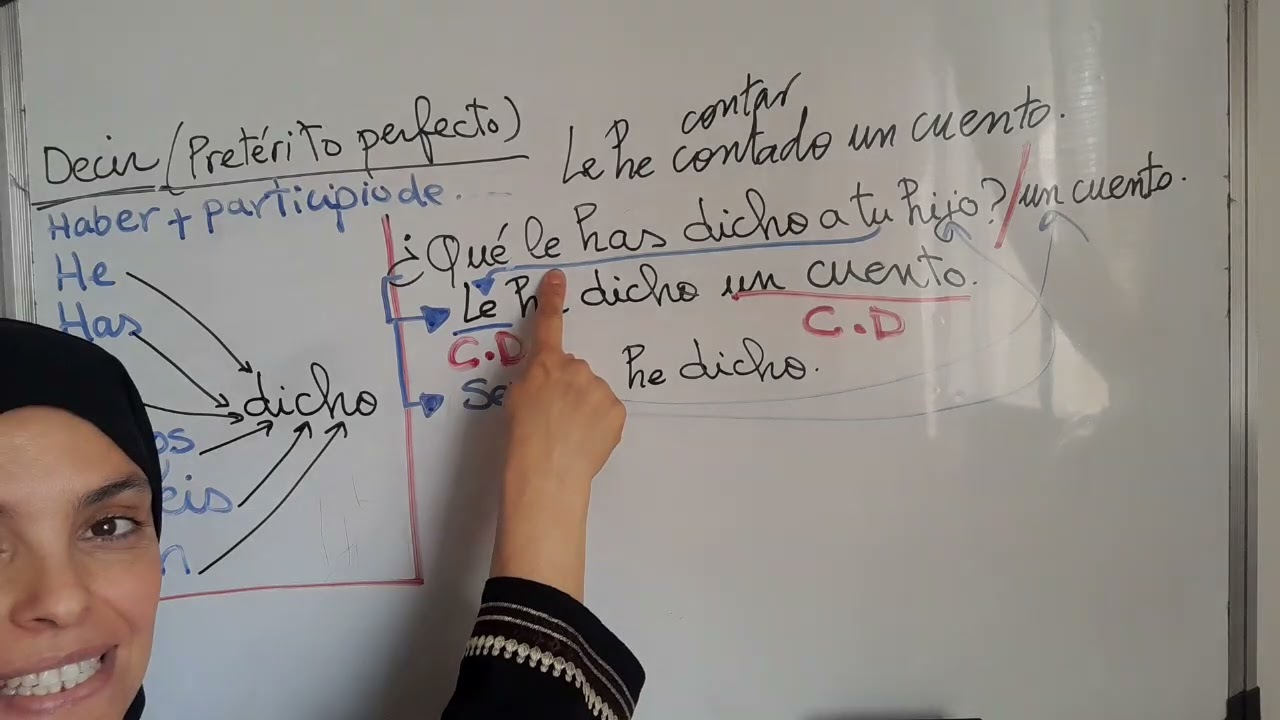 Decir (Pretérito perfecto)
Haber + participio de....
He
Has
os
éis
n
dicho
contar
Le he contado un cuento.
¿Qué le has dicho a tu hijo? / un cuento.
Le he dicho un cuento.
C.D
C.D
Se
he dicho.